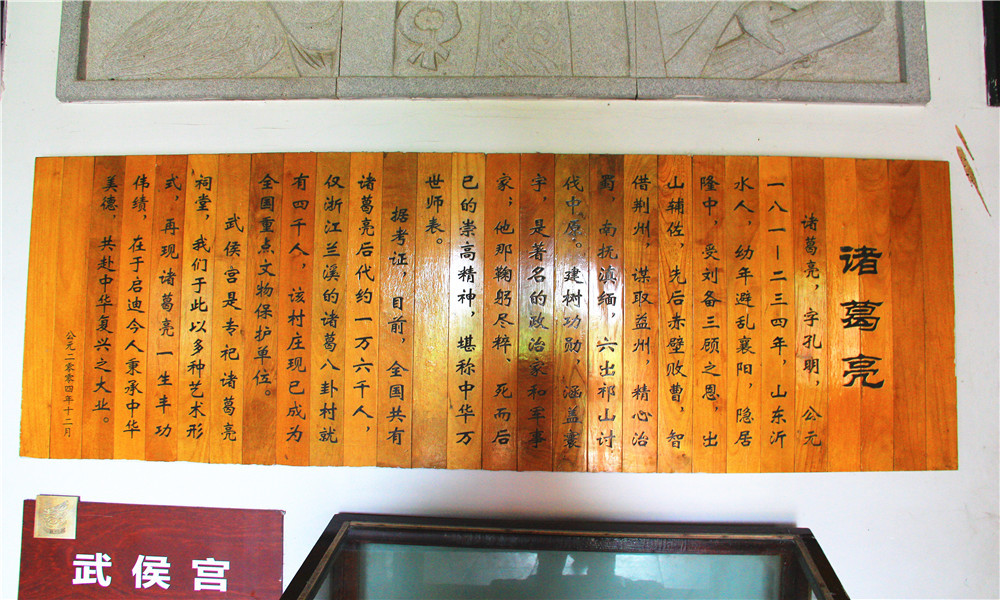 诸葛亮
诸葛亮，字孔明，公元
一八一－二三四年，山东沂
水人，幼年避乱襄阳，隐居
隆中，受刘备三顾之恩，出
山辅佐，先后赤壁败曹，智
借荆州，谋取益州，精心治
蜀，南抚滇缅，六出祁山讨
伐中原。建树功勋，涵盖寰
宇，是著名的政治家和军事
家；他那鞠躬尽粹、死而后
已的崇高精神，堪称中华万
世师表。
据考证，目前，全国共有
诸葛亮后代约一万六千人，
仅浙江兰溪的诸葛八卦村就
有四千人，该村庄现已成为
全国重点文物保护单位。
武侯宫是专祀诸葛亮
祠堂，我们于此以多种艺术形
式，再现诸葛亮一生丰功
伟绩，在于启迪今人秉承中华
美德，共赴中华复兴之大业。
公元二零零四年十二月
武侯宫